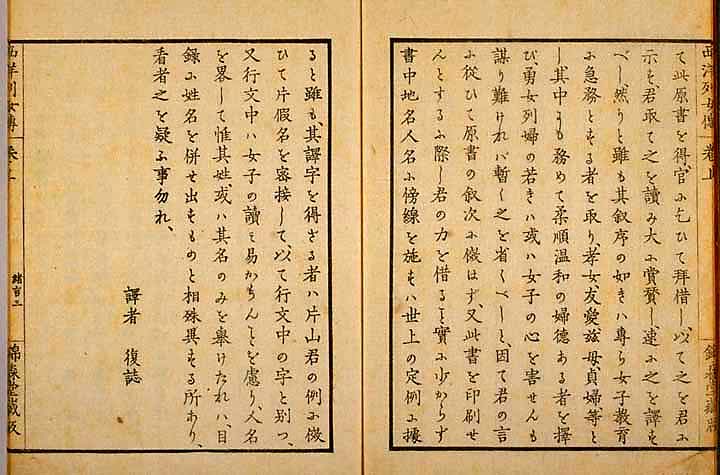 西洋列女傳 卷上
て此原書を得、官ふ乞ひて拜借し、以て之を君ふ
示も、君取て之を讀み大ふ賞賛し、速ふ之を譯も
べし然りと雖も其叙序の如きハ專ら女子敎育
ふ急務ともる者を取り、孝女友愛慈母、貞婦等と
し其中よも務めて柔順温和の婦德ある者を擇
び、勇女列婦の若きハ或ハ女子の心を害せんも
謀り難けれバ暫く之を省くべしと、因て君の言
ふ從ひて原書の叙次ふ倣はず、又此書を印刷せ
んとするふ際し君の力を借るヿ實ふ少からず
書中地名人名ふ傍線を施もハ世上の定例ふ據
ると雖も、其譯字を得ざる者ハ片山君の例ふ倣
ひて片假名を審接して、以て行文中の字と別つ、
又行文中ハ女子の讀み易からんヿを慮り、人名
を畧して惟其姓或ハ其名のみを擧けたれハ、目
錄ふ姓名を併せ出せるものと相殊異もる所あり、
看者之を疑ふ事勿れ、
譯者 復誌
西洋列女傳 卷上
緒言三
錦森堂藏版